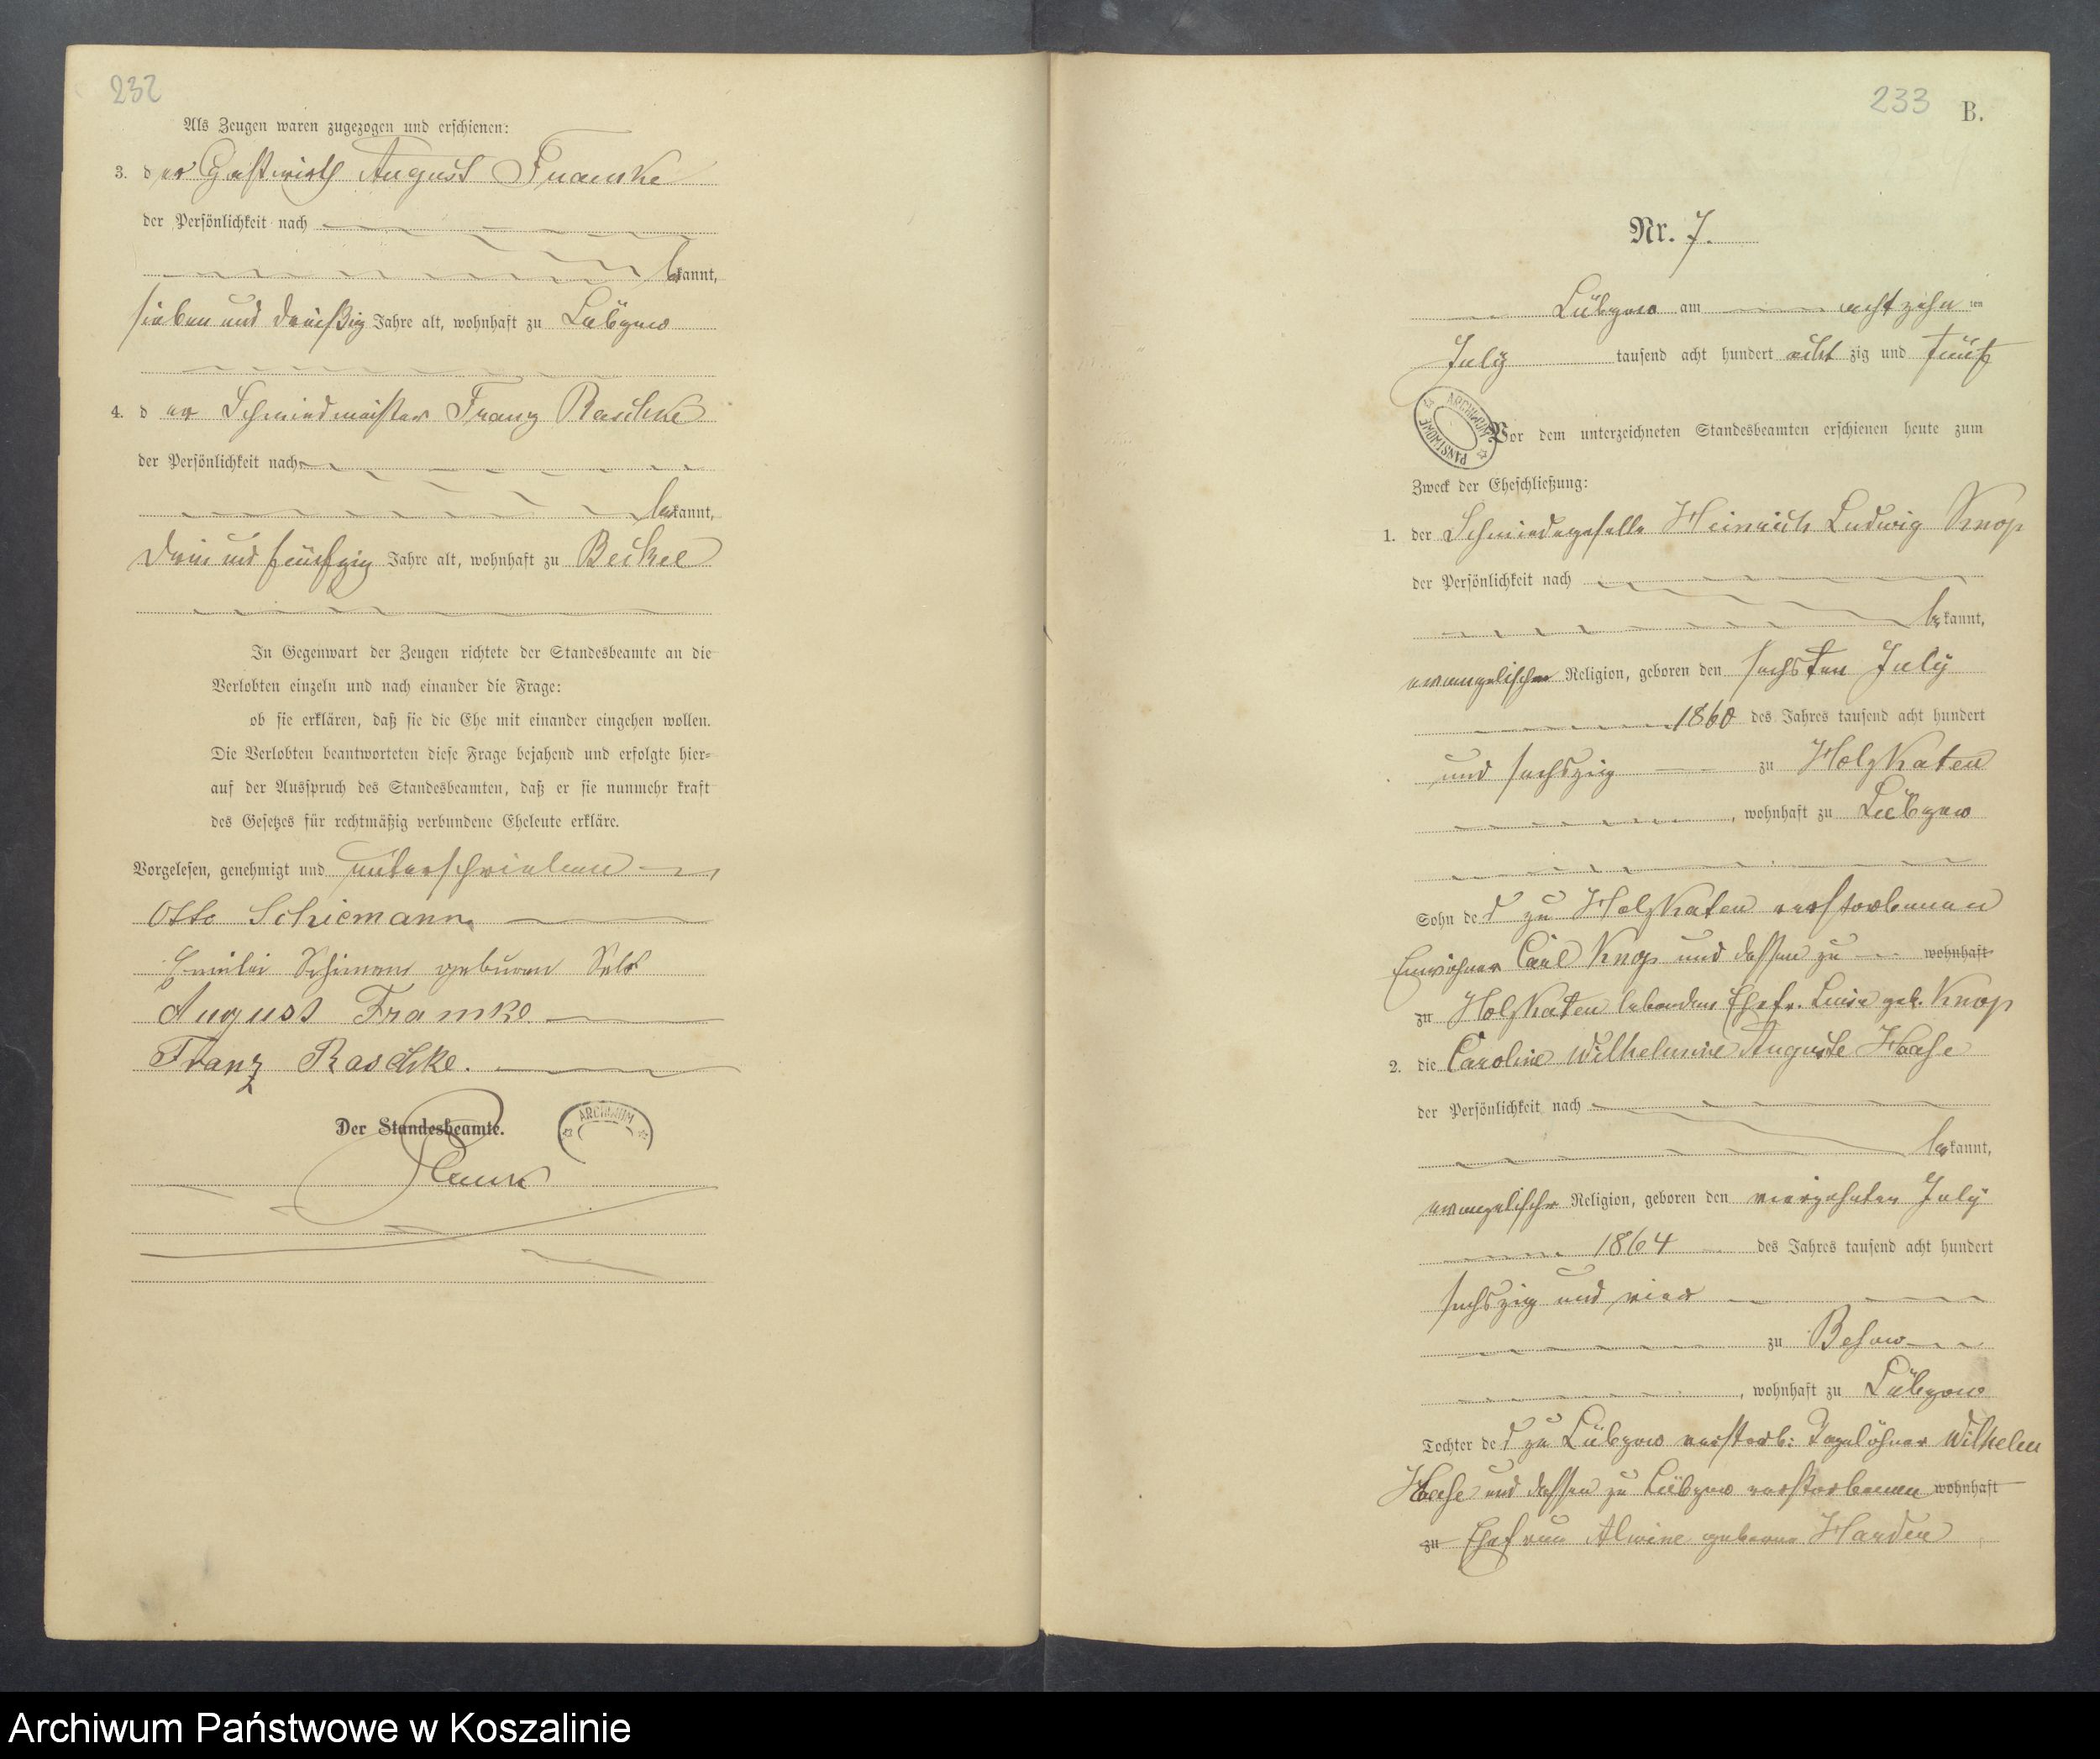 232
Als Zeugen waren zugezogen und erschienen:
3. der Gastwirth August Framke
der Persönlichkeit nach
bekannt,
sieben und dreißig Jahre alt, wohnhaft zu Lübzow
4. der Schmiedmeister Franz Raschke
der Persönlichkeit nach
bekannt,
drei und fünfzig Jahre alt, wohnhaft zu Beckel
In Gegenwart der Zeugen richtete der Standesbeamte an die
Verlobten einzeln und nach einander die Frage:
ob sie erklären, daß sie die Ehe mit einander eingehen wollen.
Die Verlobten beantworteten diese Frage bejahend und erfolgte hier-
auf der Ausspruch des Standesbeamten, daß er sie nunmehr kraft
des Gesetzes für rechtmäßig verbundene Eheleute erkläre.
Vorgelesen, genehmigt und unterschrieben
Otto Schiemann
August Framke
Franz Raschke.
Der Standesbeamte.
ARCHIWUM
233 B.
Nr. 7.
Lübzow am achtzehn ten
July tausend acht hundert acht zig und fünf
ARCHIWUM PAŃSTWOWE
Vor dem unterzeichneten Standesbeamten erschienen heute zum
Zweck der Eheschließung:
1. der Schmiedegeselle Heinrich Ludwig Knop
der Persönlichkeit nach
bekannt,
evangelischer Religion, geboren den sechsten July
1860 des Jahres tausend acht hundert
und sechszig zu Holzkaten
, wohnhaft zu Lübzow
Sohn des zu Holzkaten verstorbenen
Einwohner Carl Knop und dessen zu wohnhaft
zu Holzkaten lebenden Ehefr. Luise geb. Knop
2. die Caroline Wilhelmine Auguste Haase
der Persönlichkeit nach
bekannt,
evangelischer Religion, geboren den vierzehnten July
1864 des Jahres tausend acht hundert
sechszig und vier
zu Besow
, wohnhaft zu Lübzow
Tochter des zu Lübzow verstorb: Tagelöhner Wilhelm
Haase und dessen zu Lübzow verstorbenen wohnhaft
zu Ehefrau Alwine geborne Harden
Archiwum Państwowe w Koszalinie